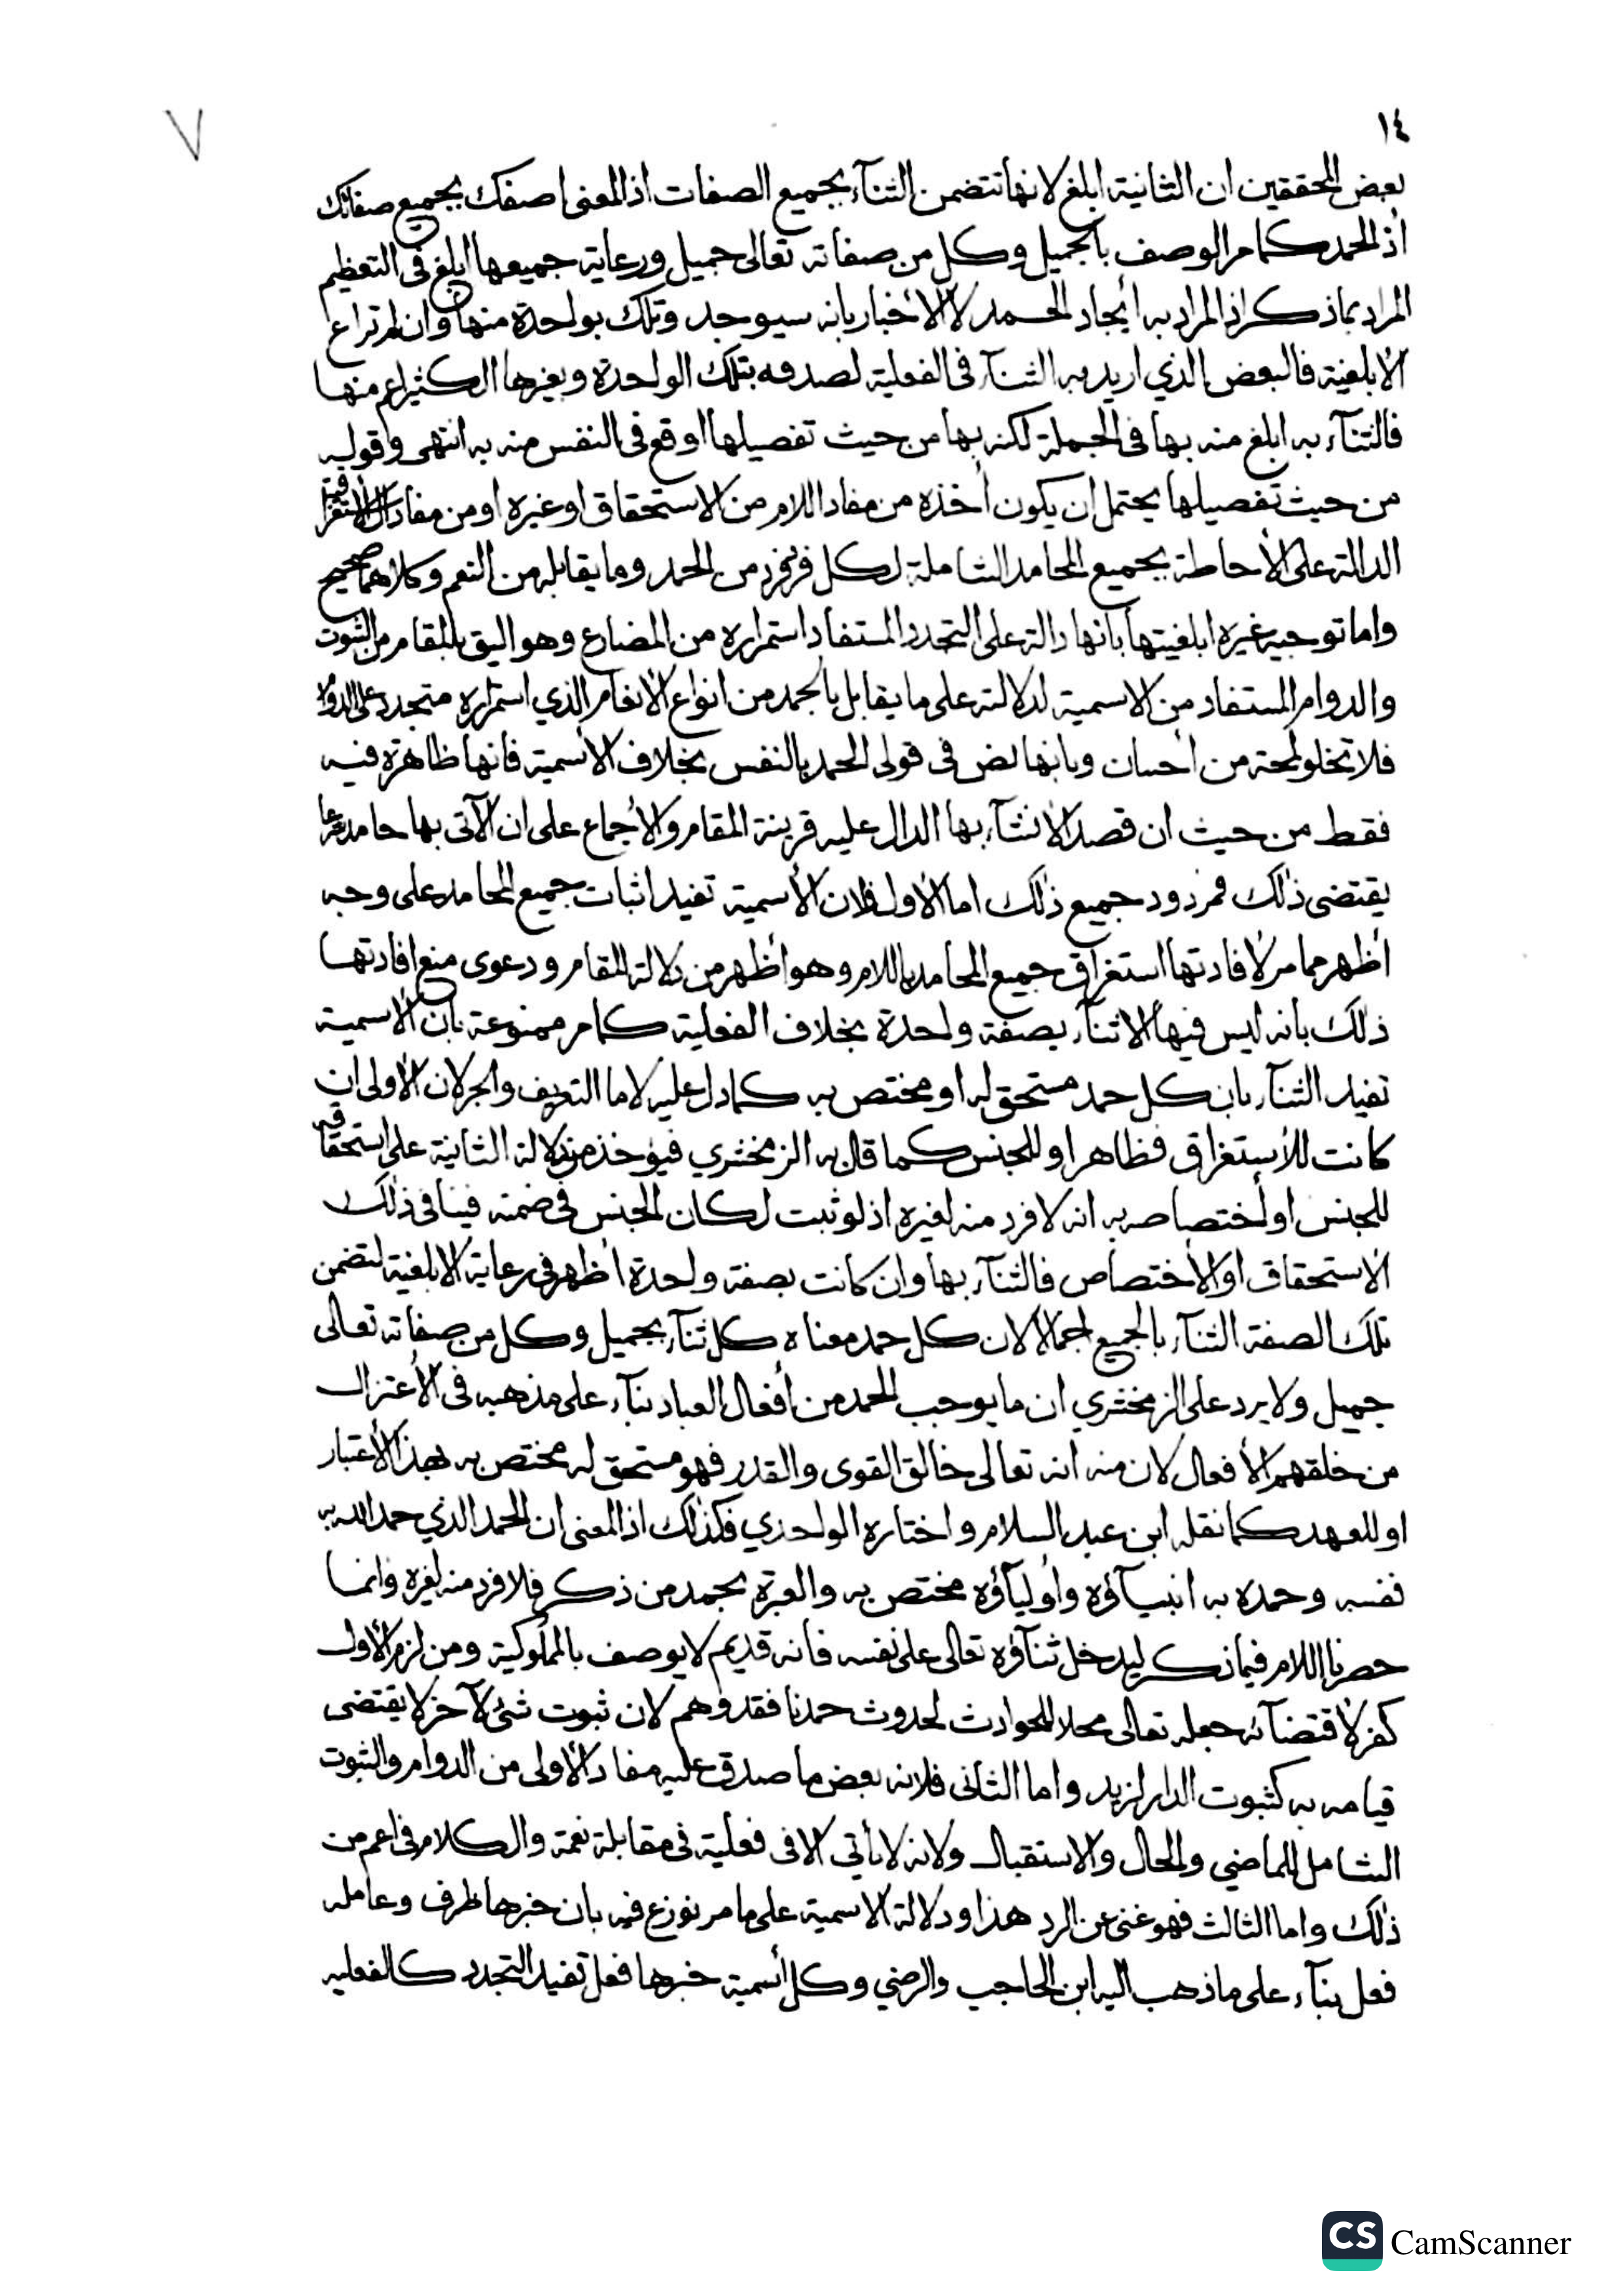 ١٤
٧
بعض المحققين ان الثانية ابلغ لانها تتضمن الثنآء بجميع الصفات اذ المعنى اصفك بجميع صفاتك
أذ الحمد كما مر الوصف بالجميل وكل من صفاته تعالى جميل ورعاية جميعها ابلغ فى التعظيم
المراد بماذكر اذ المراد به أيجاد الحمد لا الأخبار بانه سيوجد وتلك بواحدة منها وان لم تراع
الأبلغية فالبعض الذي اريد به الثنآء فى الفعلية لصدقه بتلك الواحدة وبغيرها الكثير اعم منها
فالثنآء به ابلغ منه بها فى الجملة لكنه بها من حيث تفصيلها اوقع فى النفس منه به انتهى وقوله
من حيث تفصيلها يحتمل ان يكون أخذه من مفاد اللام من الاستحقاق اوغيره او من مفاد ال الاستغراقية
الدالة على الأحاطة بجميع المحامد الشاملة لكل فرد فرد من الحمد وما يقابله من النعم وكلاهما صحيح
واما توجيه غيره ابلغيتها بانها دالة على التجدد المستفاد استمراره من المضارع وهو اليق بالمقام من الثبوت
والدوام المستفاد من الاسمية لدلالته على ما يقابل بالحمد من انواع الأنعام الذي استمراره متجدد على الدوام
فلا تخلو لمحة من أحسان وبانها نص فى قولى الحمد بالنفس بخلاف الأسمية فانها ظاهرة فيه
فقط من حيث ان قصد الأنشآء بها الدال عليه قرينة المقام والأجماع على ان الآتى بها حامد شرعا
يقتضى ذلك فمردود جميع ذلك اما الأول فلان الأسمية تفيد اثبات جميع المحامد على وجه
أظهر مما مر لأفادتها استغراق جميع المحامد باللام وهو أظهر من دلالة المقام ودعوى منع افادتها
ذلك بأنه ليس فيها الا ثنآء بصفة واحدة بخلاف الفعلية كما مر ممنوعة بان الاسمية
تفيد الثنآء بان كل حمد مستحق له او مختص به كما دل عليه لاما التعريف والجر لان الأولى ان
كانت للأستغراق فظاهر او للجنس كما قال به الزمخشري فيؤخذ من دلالة الثانية على استحقاقه
للجنس او أختصاصه به انه لا فرد منه لغيره اذ لو ثبت لكان الجنس فى ضمنه فينافى ذلك
الأستحقاق او الأختصاص فالثنآء بها وان كانت بصفة واحدة أظهر فى رعاية الابلغية لتضمن
تلك الصفة الثنآء بالجميع اجمالا لان كل حمد معناه كل ثنآء بجميل وكل من صفاته تعالى
جميل ولا يرد على الزمخشري ان ما يوجب الحمد من أفعال العباد بنآء على مذهبه فى الأعتزال
من خلقهم الأفعال لان منه انه تعالى خالق القوى والقدر فهو مستحق له مختص به بهذا الأعتبار
او للعهد كما نقله ابن عبد السلام واختاره الواحدي فكذلك اذ المعنى ان الحمد الذي حمد الله به
نفسه وحمده به انبيآؤه وأوليآؤه مختص به والعبرة بحمد من ذكر فلا فرد منه لغيره وانما
حصرنا اللام فيما ذكر ليدخل ثنآؤه تعالى على نفسه فانه قديم لا يوصف بالمملوكية ومن لزم الأول
كفر لأقتضآئه جعله تعالى محلا للحوادث لحدوث حمدنا فقد وهم لان ثبوت شئ لآخر لا يقتضى
قيامه به كثبوت الدار لزيد واما الثانى فلانه بعض ما صدق عليه مفاد الأولى من الدوام والثبوت
الشامل للماضي والحال والاستقبال ولانه لا يأتي الا فى فعلية فى مقابلة نعمة والكلام فى اعم من
ذلك واما الثالث فهو غنى عن الرد هذا ودلالة الاسمية على ما مر نوزع فيه بان خبرها ظرف وعامله
فعل بنآء على ماذهب اليه ابن الحاجب والرضي وكل أسمية خبرها فعل تفيد التجدد كالفعليه
CS CamScanner